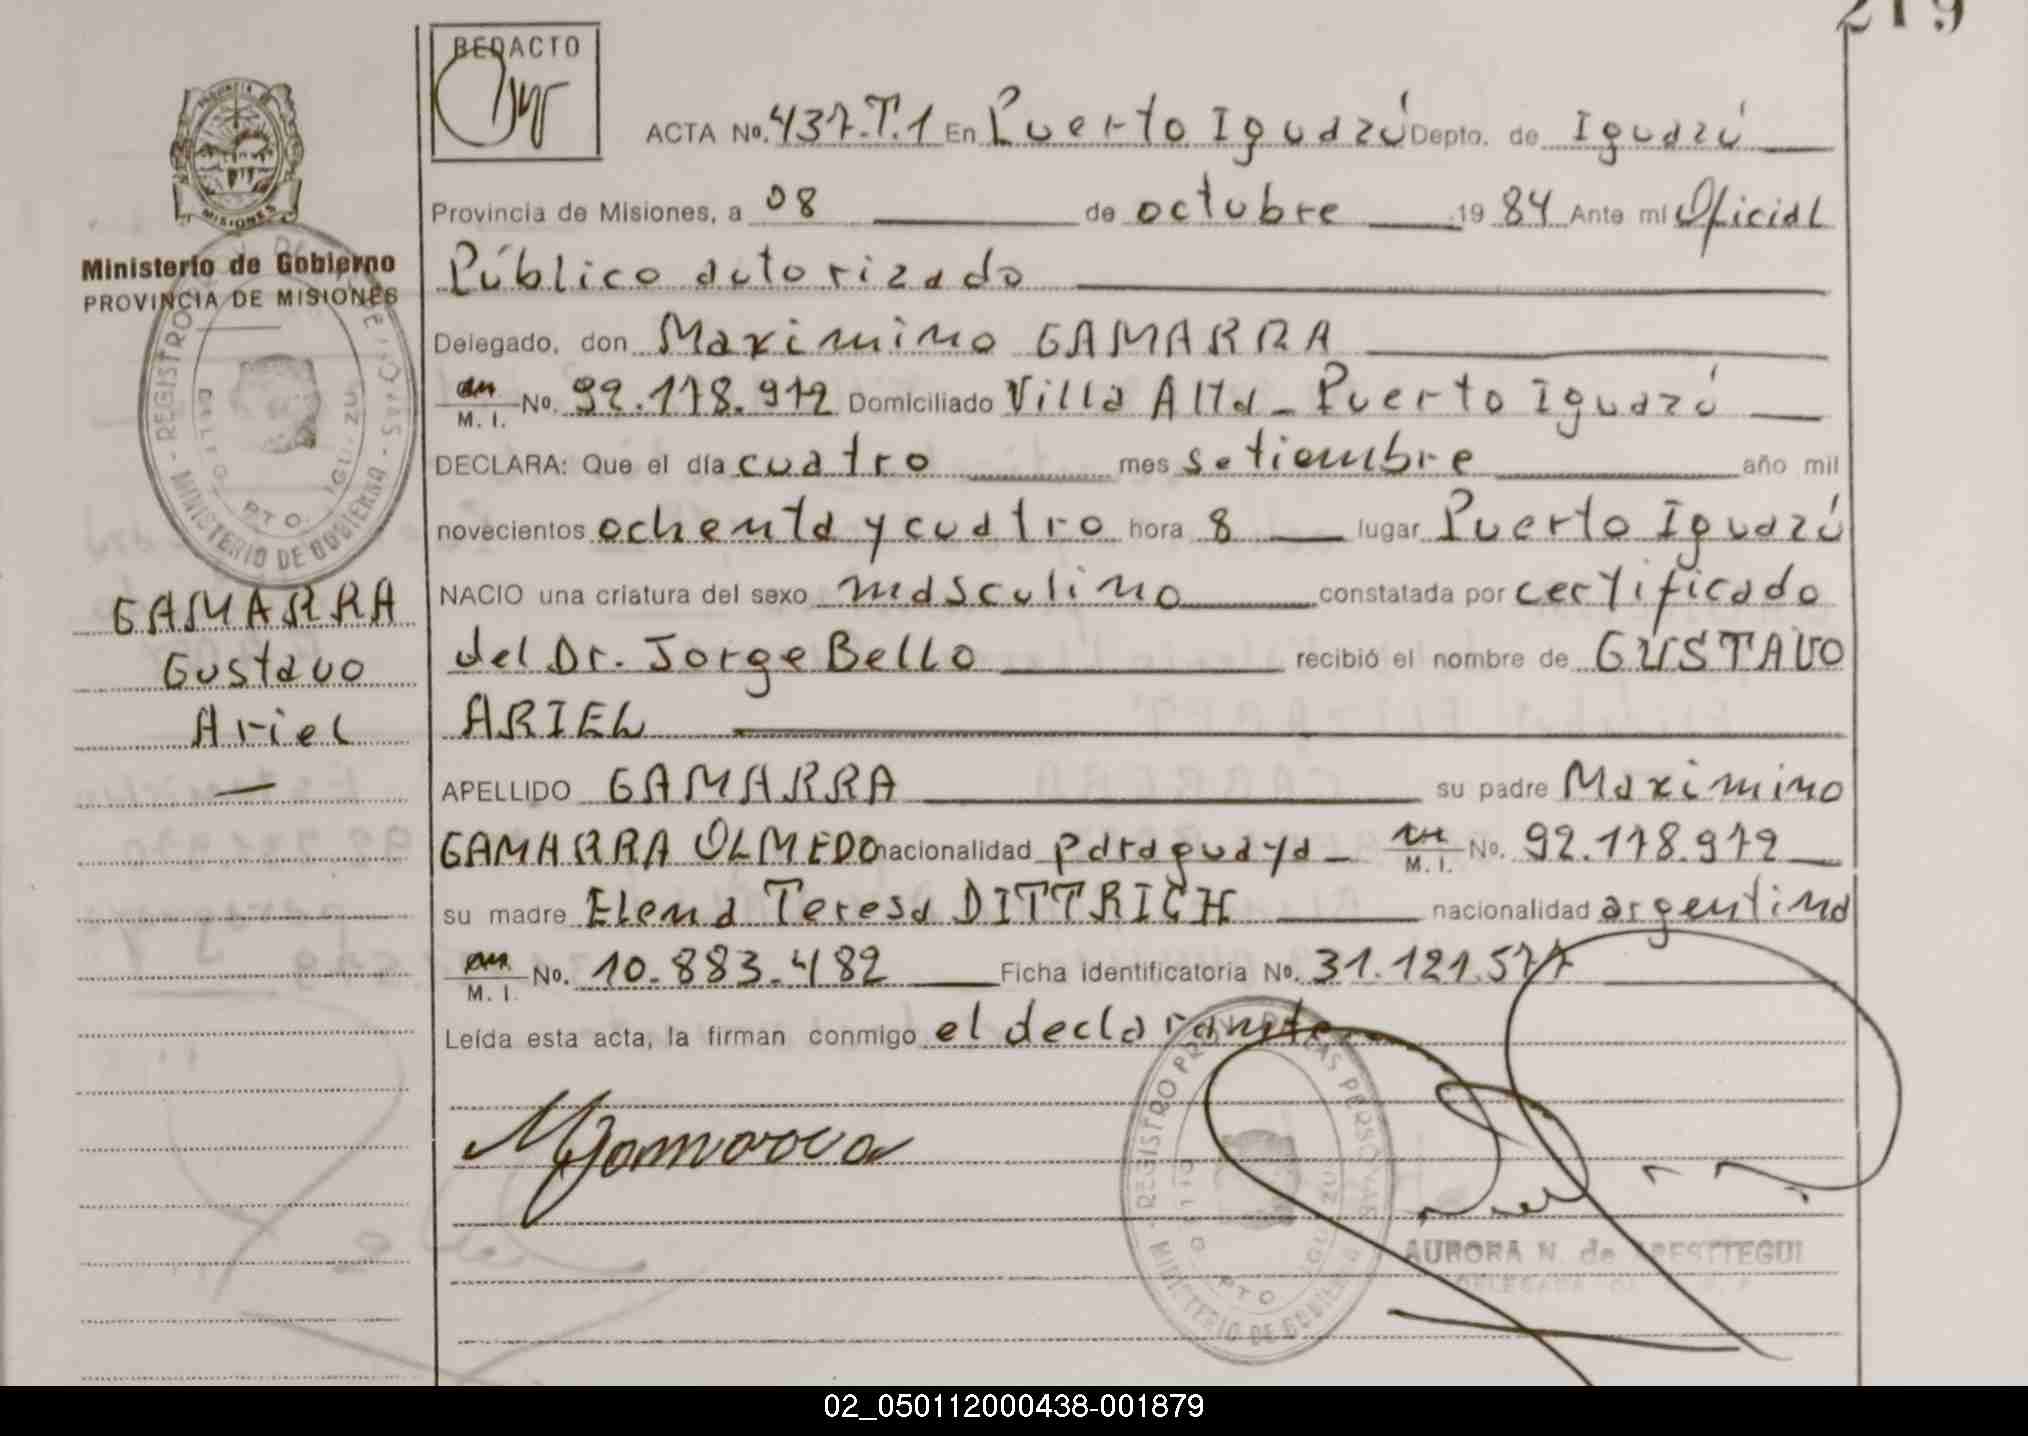 219
REDACTO
PROVINCIA DE MISIONES
Ministerio de Gobierno
PROVINCIA DE MISIONES
REGISTRO
MINISTERIO DE GOBIERNO
PTO. IGUAZU
GAMARRA
Gustavo
Ariel
—
ACTA No. 437.T.1 En Puerto Iguazú Depto. de Iguazú
Provincia de Misiones, a 08 de octubre 1984 Ante mi Oficial
Público autorizado
Delegado, don Maximino GAMARRA
M. I. No. 92.178.972 Domiciliado Villa Alta - Puerto Iguazú
DECLARA: Que el día cuatro mes setiembre año mil
novecientos ochenta y cuatro hora 8 lugar Puerto Iguazú
NACIO una criatura del sexo masculino constatada por certificado
del Dr. Jorge Bello recibió el nombre de GUSTAVO
ARIEL
APELLIDO GAMARRA su padre Maximino
GAMARRA OLMEDO nacionalidad paraguaya - M. I. No. 92.178.972
su madre Elena Teresa DITTRICH nacionalidad argentina
M. I. No. 10.883.482 Ficha identificatoria No. 31.121.577
Leída esta acta, la firman conmigo el declarante
MGamarra
REGISTRO PROV. DE LAS PERSONAS
MINISTERIO DE GOBIERNO
PTO. IGUAZU
AURORA N. de
02_050112000438-001879